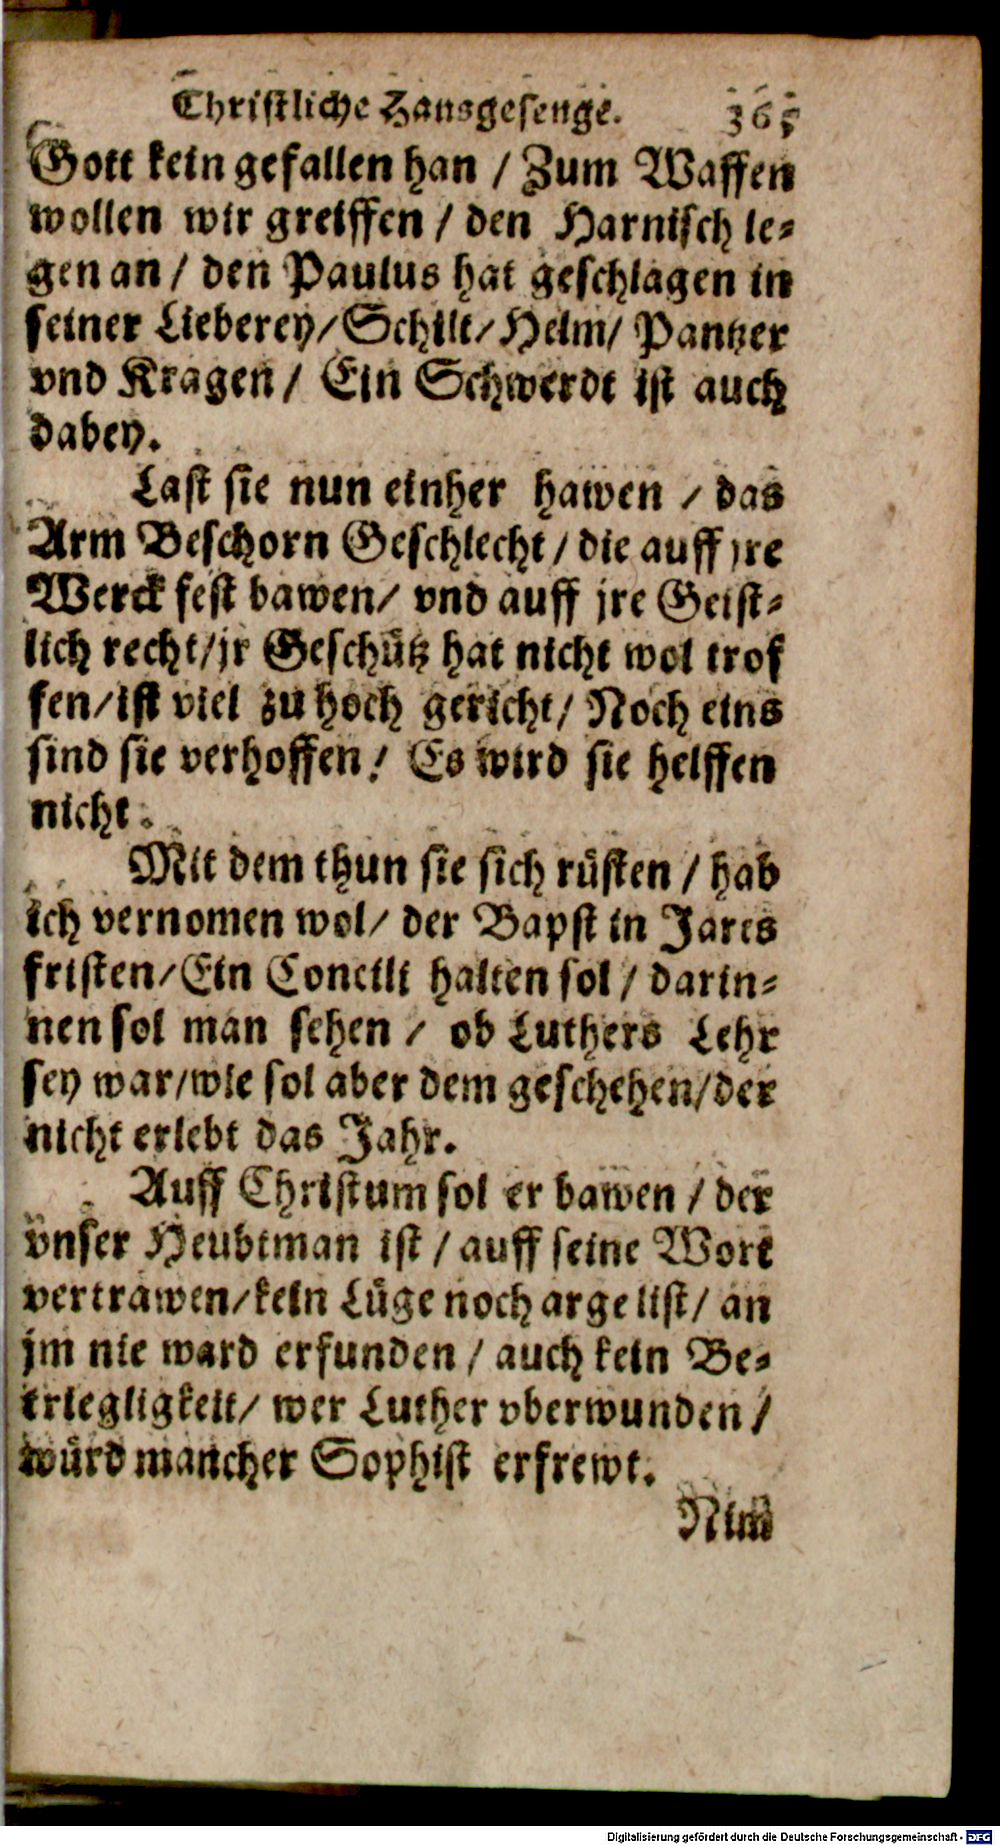 Christliche Hausgesenge. 365
Gott kein gefallen han / Zum Waffen
wollen wir greiffen / den Harnisch le⸗
gen an / den Paulus hat geschlagen in
seiner Lieberey / Schilt / Helm / Pantzer
vnd Kragen / Ein Schwerdt ist auch
dabey.
Last sie nun einher hawen / das
Arm Beschorn Geschlecht / die auff jre
Werck fest bawen / vnd auff jre Geist⸗
lich recht / jr Geschütz hat nicht wol trof
fen / ist viel zu hoch gericht / Noch eins
sind sie verhoffen / Es wird sie helffen
nicht.
Mit dem thun sie sich rüsten / hab
ich vernomen wol / der Bapst in Jares
fristen / Ein Concili halten sol / darin⸗
nen sol man sehen / ob Luthers Lehr
sey war / wie sol aber dem geschehen / der
nicht erlebt das Jahr.
Auff Christum sol er bawen / der
vnser Heubtman ist / auff seine Wort
vertrawen / kein Lüge noch arge list / an
jm nie ward erfunden / auch kein Be⸗
triegligkeit / wer Luther vberwunden /
würd mancher Sophist erfrewt.
Nim
Digitalisierung gefördert durch die Deutsche Forschungsgemeinschaft - DFG